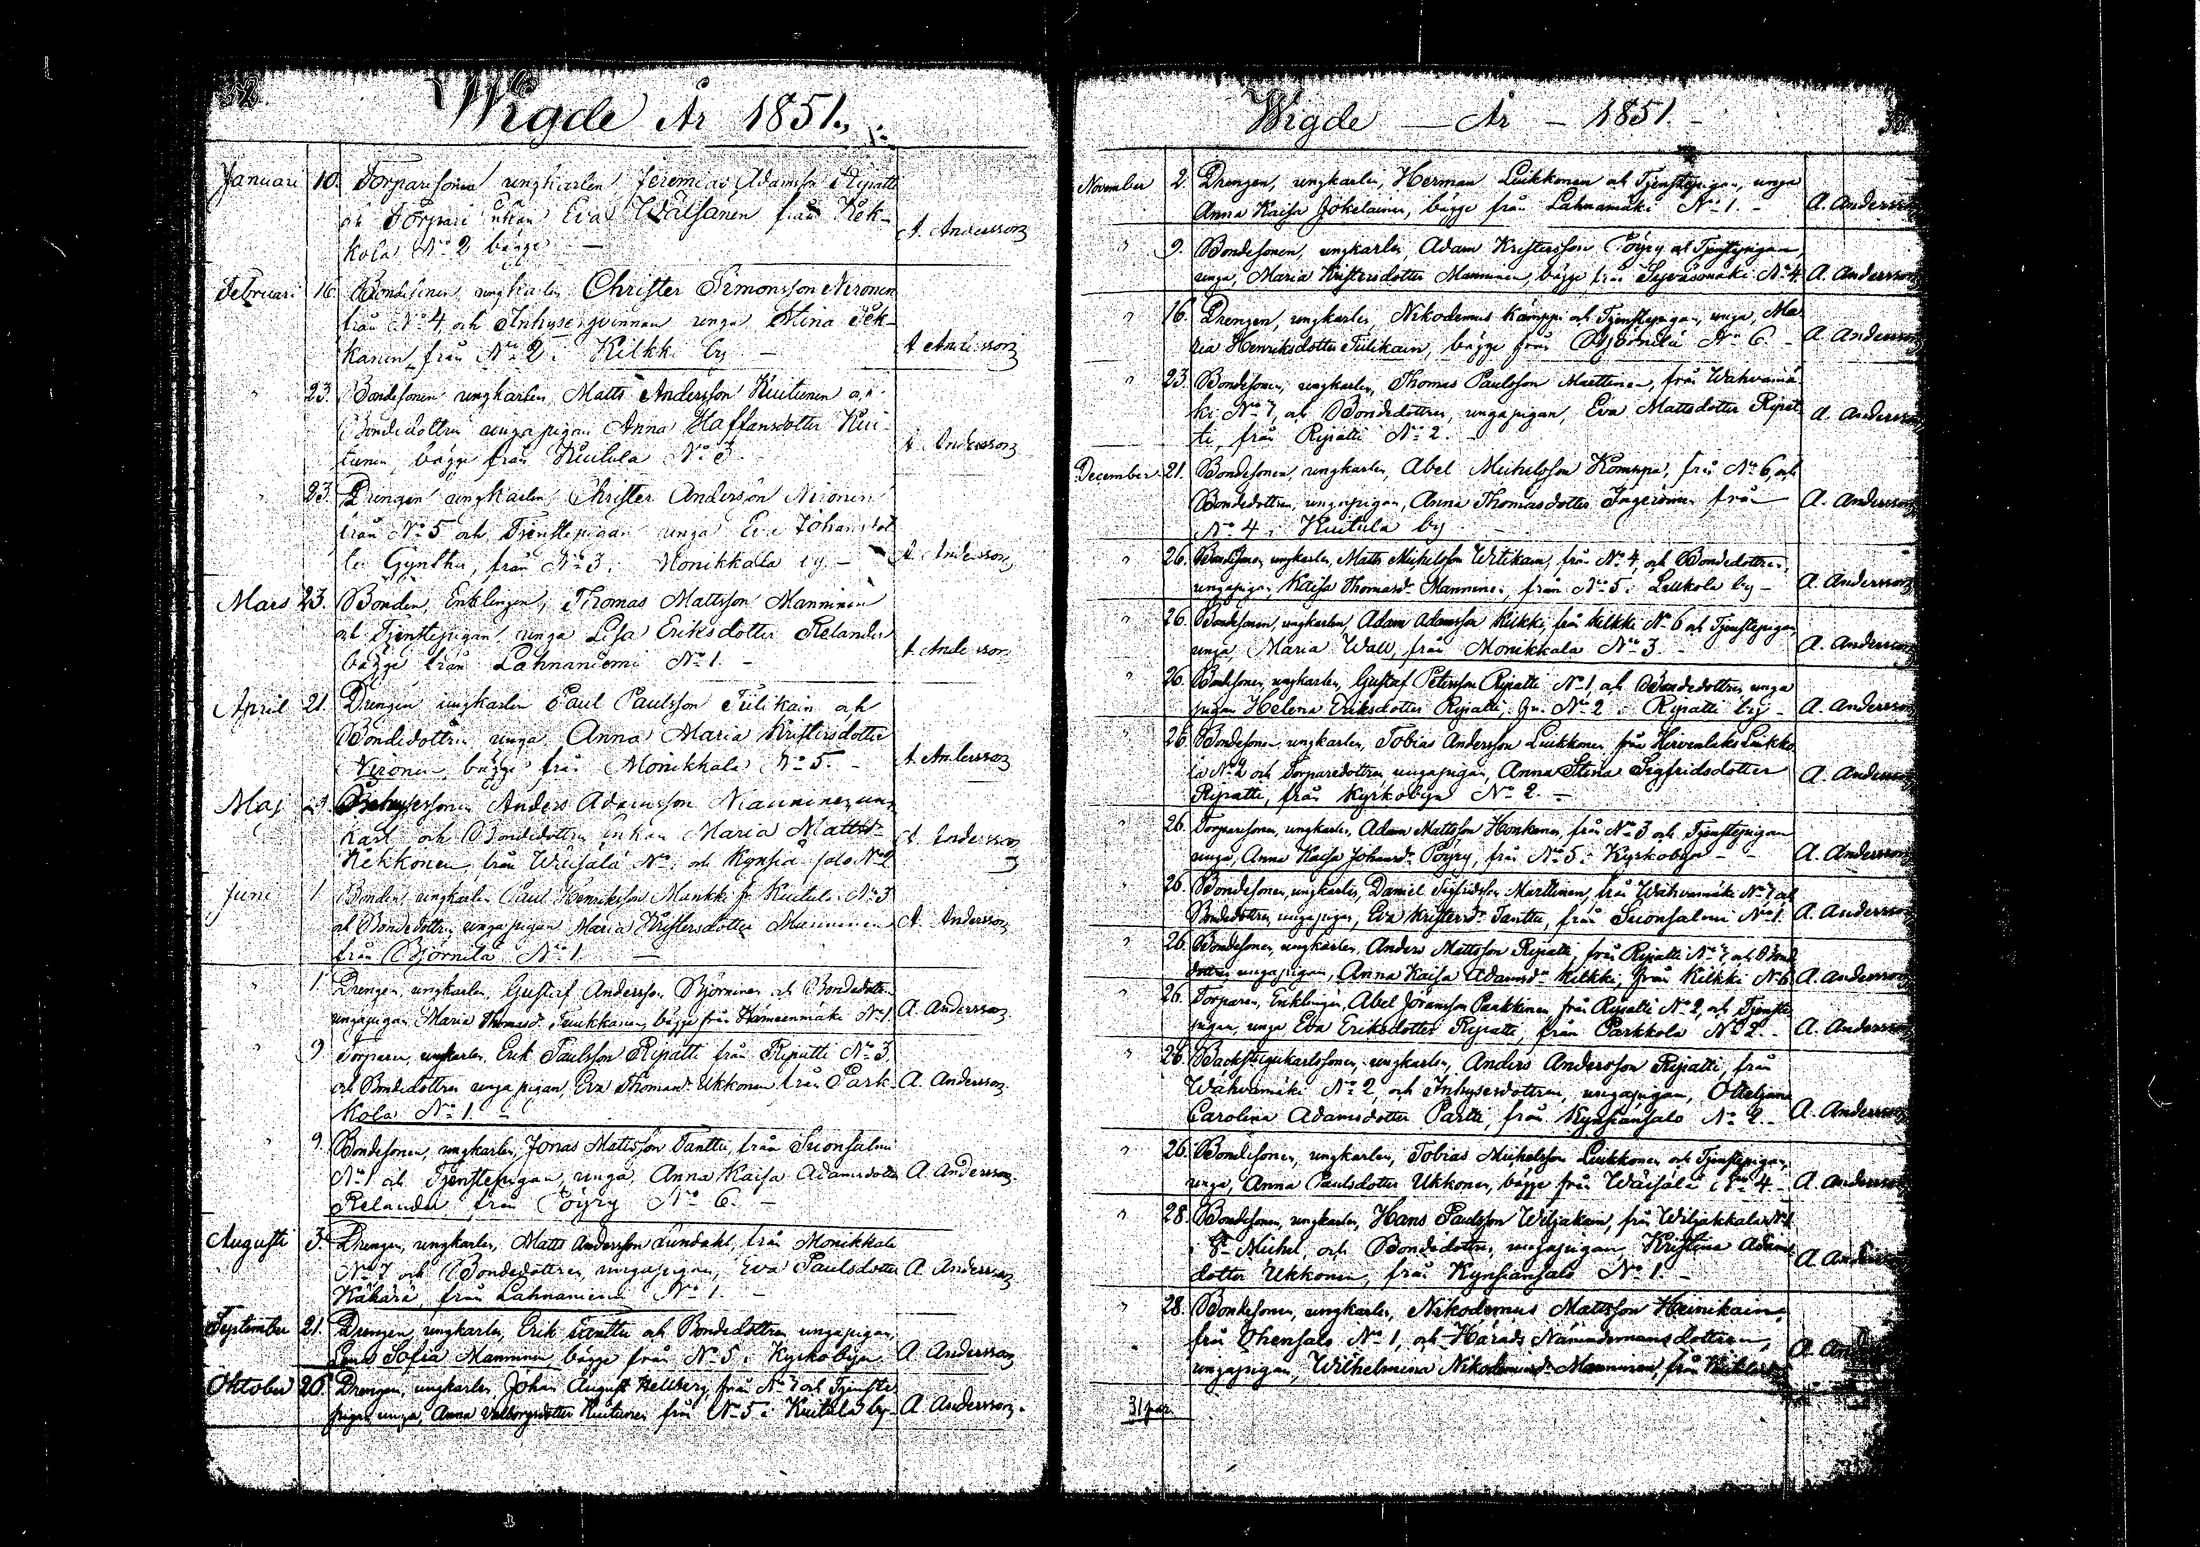 32.
Wigde År 1851.
Januari 10. Torparesonen ungkarlen Jeremias Adamsson Ripatti
och Torpare enkan Eva Wäisänen från Kek-
kola No 2 bägge — A. Andersson
Februari 16. Bondesonen ungkarlen Christer Simonsson Nironen
från No 4 och Inhysesqvinnan unga Stina Pek-
kanen från No 2 i Kilkki by — A Andersson
" 23. Bondesonen ungkarlen Matts Andersson Kuitunen och
Bondedottren ungapigan Anna Staffansdotter Kui-
tunen, bägge från Kuitula No 3 A Andersson
" 23. Drengen ungkarlen Christer Andersson Nironen
från No 5 och Tjenstepigan unga Eva Johansdot
ter Gynther, från No 3 i Monikkala by — A Andersson
Mars 23. Bonden, Enklingen, Thomas Mattsson Manninen
och Tjenstepigan unga Lisa Eriksdotter Relander
bägge från Lahnaniemi No 1. — A Andersson
April 21. Drengen ungkarlen Paul Paulsson Tiilikain och
Bondedottren unga Anna Maria Kristersdotter
Nironen, bägge från Monikkala No 5. — A Andersson
Maj Anders Adamsson Manninen, ung
karl och Bondedottren enkan Maria Mattsd-
Kekkonen från Wäisälä No och No 2 A Andersson
Juni 1 Bonden, ungkarlen Paul Henriksson Mankki fr Kuitula No 3
och Bondedottren ungapigan Maria Kristersdotter Manninen
från Björnilä No 1 — A. Andersson
" 1. Drengen, ungkarlen, Gustaf Andersson Björninen och Bondedottren
ungapigan Maria Thomasd. bägge från Hämeenmäki No 1 A. Andersson
" 9 Torparen, ungkarlen, Erik Paulsson Ripatti från Ripatti No 3,
och Bondedottren ungapigan, Eva Thomasd. Ukkonen från Park-
kola No 1. — A. Andersson
" 9. Bondesonen, ungkarlen, Jonas Mattsson Tanttu, från Suonsalmi
No 1 och Tjenstepigan, unga, Anna Kaisa Adamsdotter
Relander, från Pöyry No 6. — A Andersson
Augusti 3. Drengen, ungkarlen, Matts Andersson Lundahl, från Monikkala
No 7 och Bondedottren, ungapigan, Eva Paulsdotter
Käkärä, från Lahnaniemi No 1. — A Andersson
September 21. Drengen, ungkarlen, Erik Tanttu och Bondedottren ungapigan,
Lena Sofia Manninen bägge från No 5 i Kyrkobyn A Andersson
Oktober 26. Drengen, ungkarlen, Johan August Hellberg, från No 7 och Tjenste
pigan unga, Anna Valborgsdotter Kuitunen från No 5 i Kuitula by A Andersson.
Wigde — År — 1851. —
November 2. Drengen, ungkarlen, Herman Liukkonen och Tjenstepigan, unga
Anna Kaisa Jokelainen, bägge från Lahnamäki No 1. — A. Andersson
" 9. Bondesonen, ungkarlen, Adam Kristersson Pöyry och Tjenstepigan,
unga, Maria Kristersdotter Manninen, bägge från Syväsmäki No 4 A. Andersson
" 16. Drengen, ungkarlen, Nikodemus Kämppi och Tjenstepigan, unga, Ma-
ria Henriksdotter Tiilikain, bägge från Björnilä No 6. — A Andersson
" 23. Bondesonen, ungkarlen, Thomas Paulsson Marttinen, från Wahvamä
ki No 7, och Bondedottren, ungapigan, Eva Mattsdotter Ripat
ti, från Ripatti No 2. A Andersson
December 21. Bondesonen, ungkarlen, Abel Michelsson Komppa, från No 6, och
Bondedottren, ungapigan, Anna Thomasdotter Ingeroinen från
No 4 i Kuitula by — A. Andersson
" 26. Bondesonen, ungkarlen, Matts Michelsson Witikain, från No 4 och Bondedottren,
ungapigan, Kaisa Thomasd. Manninen från No 5 i Laukola by — A. Andersson
" 26. Bondesonen, ungkarlen, Adam Adamsson Kilkki, från Kilkki No 6 och Tjenstepigan
unga, Maria Wall, från Monikkala No 3. — A. Andersson
" 26. Bondesonen, ungkarlen, Gustaf Petersson Ripatti No 1, och Bondedottren, unga
pigan Helena Eriksdotter Ripatti, fr. No 2 i Ripatti by — A. Andersson
" 26. Bondesonen, ungkarlen, Tobias Andersson Liukkonen, från Hirvenlaks Liukko
la No 2 och Torparedottren ungapigan, Anna Stina Sigfridsdotter
Ripatti, från Kyrkobyn No 2. — A. Andersson
" 26. Torparesonen, ungkarlen, Adam Mattsson Honkanen, från No 3 och Tjenstepigan
unga, Anna Kaisa Johansd. Pöyry, från No 5 i Kyrkobyn — A. Andersson
" 26. Bondesonen, ungkarlen, Daniel Sigfridsson Marttinen, från Wahvamäki No 7, och
Bondedottren, ungapigan, Eva Kristersd. Tanttu, från Suonsalmi No 1. A. Andersson
" 26. Bondesonen, ungkarlen, Anders Mattsson Ripatti, från Ripatti No 7 och Bonde
dottren ungapigan, Anna Kaisa Adamsd. Kilkki, från Kilkki No 6 A. Andersson
" 26. Torparen, Enklingen, Abel Jöransson Paakkinen, från Ripatti No 2, och Tjenste
pigan, unga Eva Eriksdotter Ripatti, från Parkkola No 2. — A. Andersson
" 26. Backstugukarlssonen, ungkarlen, Anders Andersson Ripatti, från
Wahvamäki No 2, och Inhysesdottren, ungapigan, Ottiljana
Carolina Adamsdotter Partti, från Kynsiänsalo No 2. — A. Andersson
" 26. Bondesonen, ungkarlen, Tobias Michelsson Liukkonen och Tjenstepigan,
unga, Anna Paulsdotter Ukkonen, bägge från Wäisälä No 4. — A. Andersson
" 28. Bondesonen, ungkarlen, Hans Paulsson Wiljakain, från Wiljakkala No 1
i St Michel, och Bondedottren, ungapigan, Kristina Adams
dotter Ukkonen, från Kynsiänsalo No 1. — A Andersson
" 28. Bondesonen, ungkarlen, Nikodemus Mattsson Heinikain,
från Ohensalo No 1, och Härads Nämndemansdottren,
ungapigan, Wilhelmina Nikodemusd. Manninen, från A Andersson
31 par.